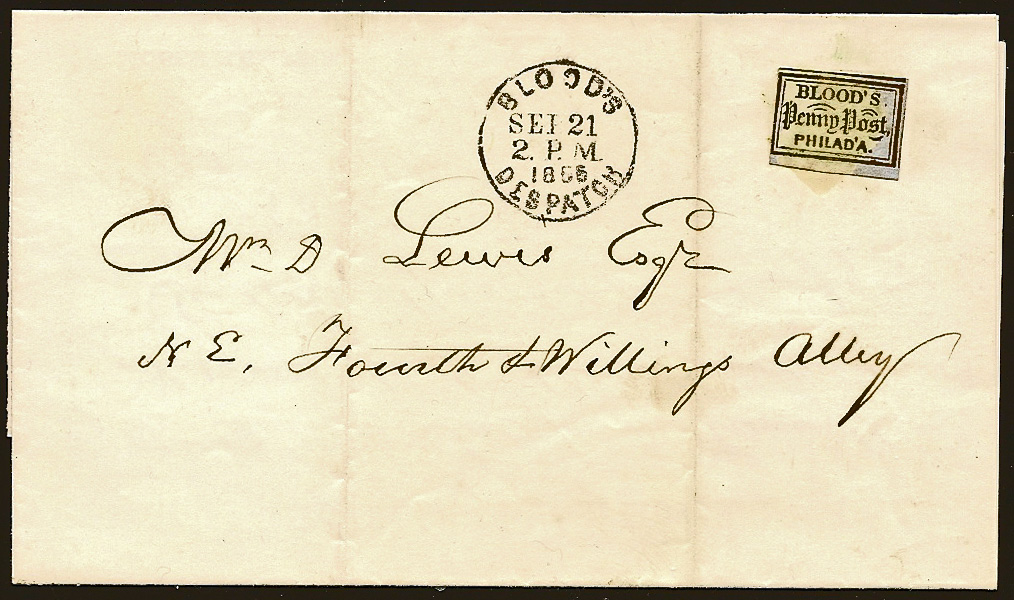 BLOOD'S
SEP 21
2. P. M.
1856
DESPATCH
BLOOD'S
Penny Post,
PHILAD'A.
Wm D Lewis Esqr
N E, Fourth & Willings Alley